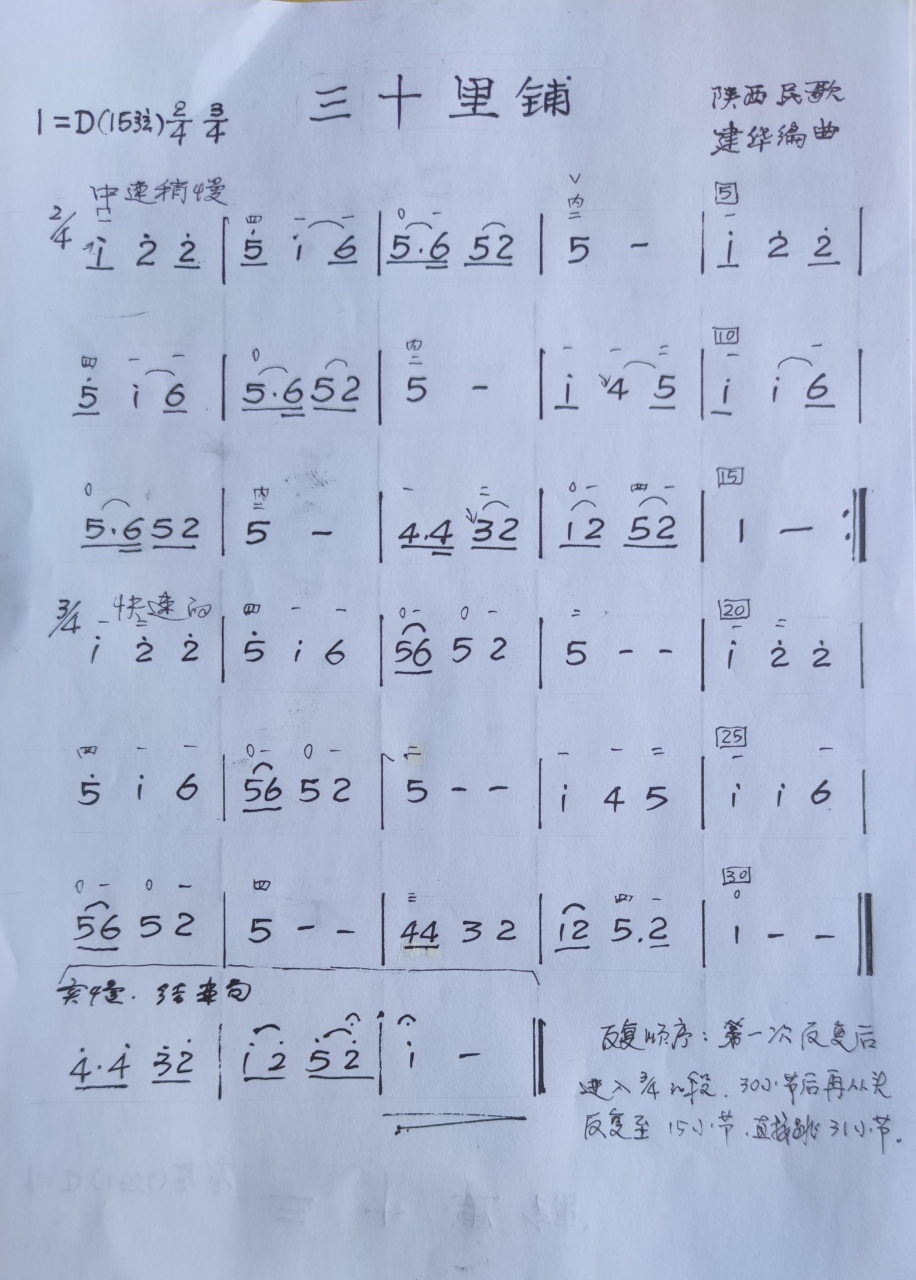 三十里铺
1=D(15弦) 2/4 3/4
陕西民歌
建华编曲
中速稍慢
2/4 i̇ 2̇ 2̇ | 5̇ i̇ 6 | 5·6 52 | 5 - | i̇ 2̇ 2̇ |
5̇ i̇ 6 | 5·6 52 | 5 - | i̇ 4 5 | i̇ i̇ 6 |
5·6 52 | 5 - | 4·4 32 | 12 52 | 1 - :‖
快速的
3/4 i̇ 2̇ 2̇ | 5̇ i̇ 6 | 56 5 2 | 5 - - | i̇ 2̇ 2̇ |
5̇ i̇ 6 | 56 5 2 | 5 - - | i̇ 4 5 | i̇ i̇ 6 |
56 5 2 | 5 - - | 44 3 2 | 12 5·2 | 1 - - ‖
突慢.结束句
4̇·4̇ 3̇2̇ | i̇2̇ 5̇2̇ | i̇ - ‖
反复顺序：第一次反复后
进入3/4的段.30小节后再从头
反复至15小节.直接跳31小节。